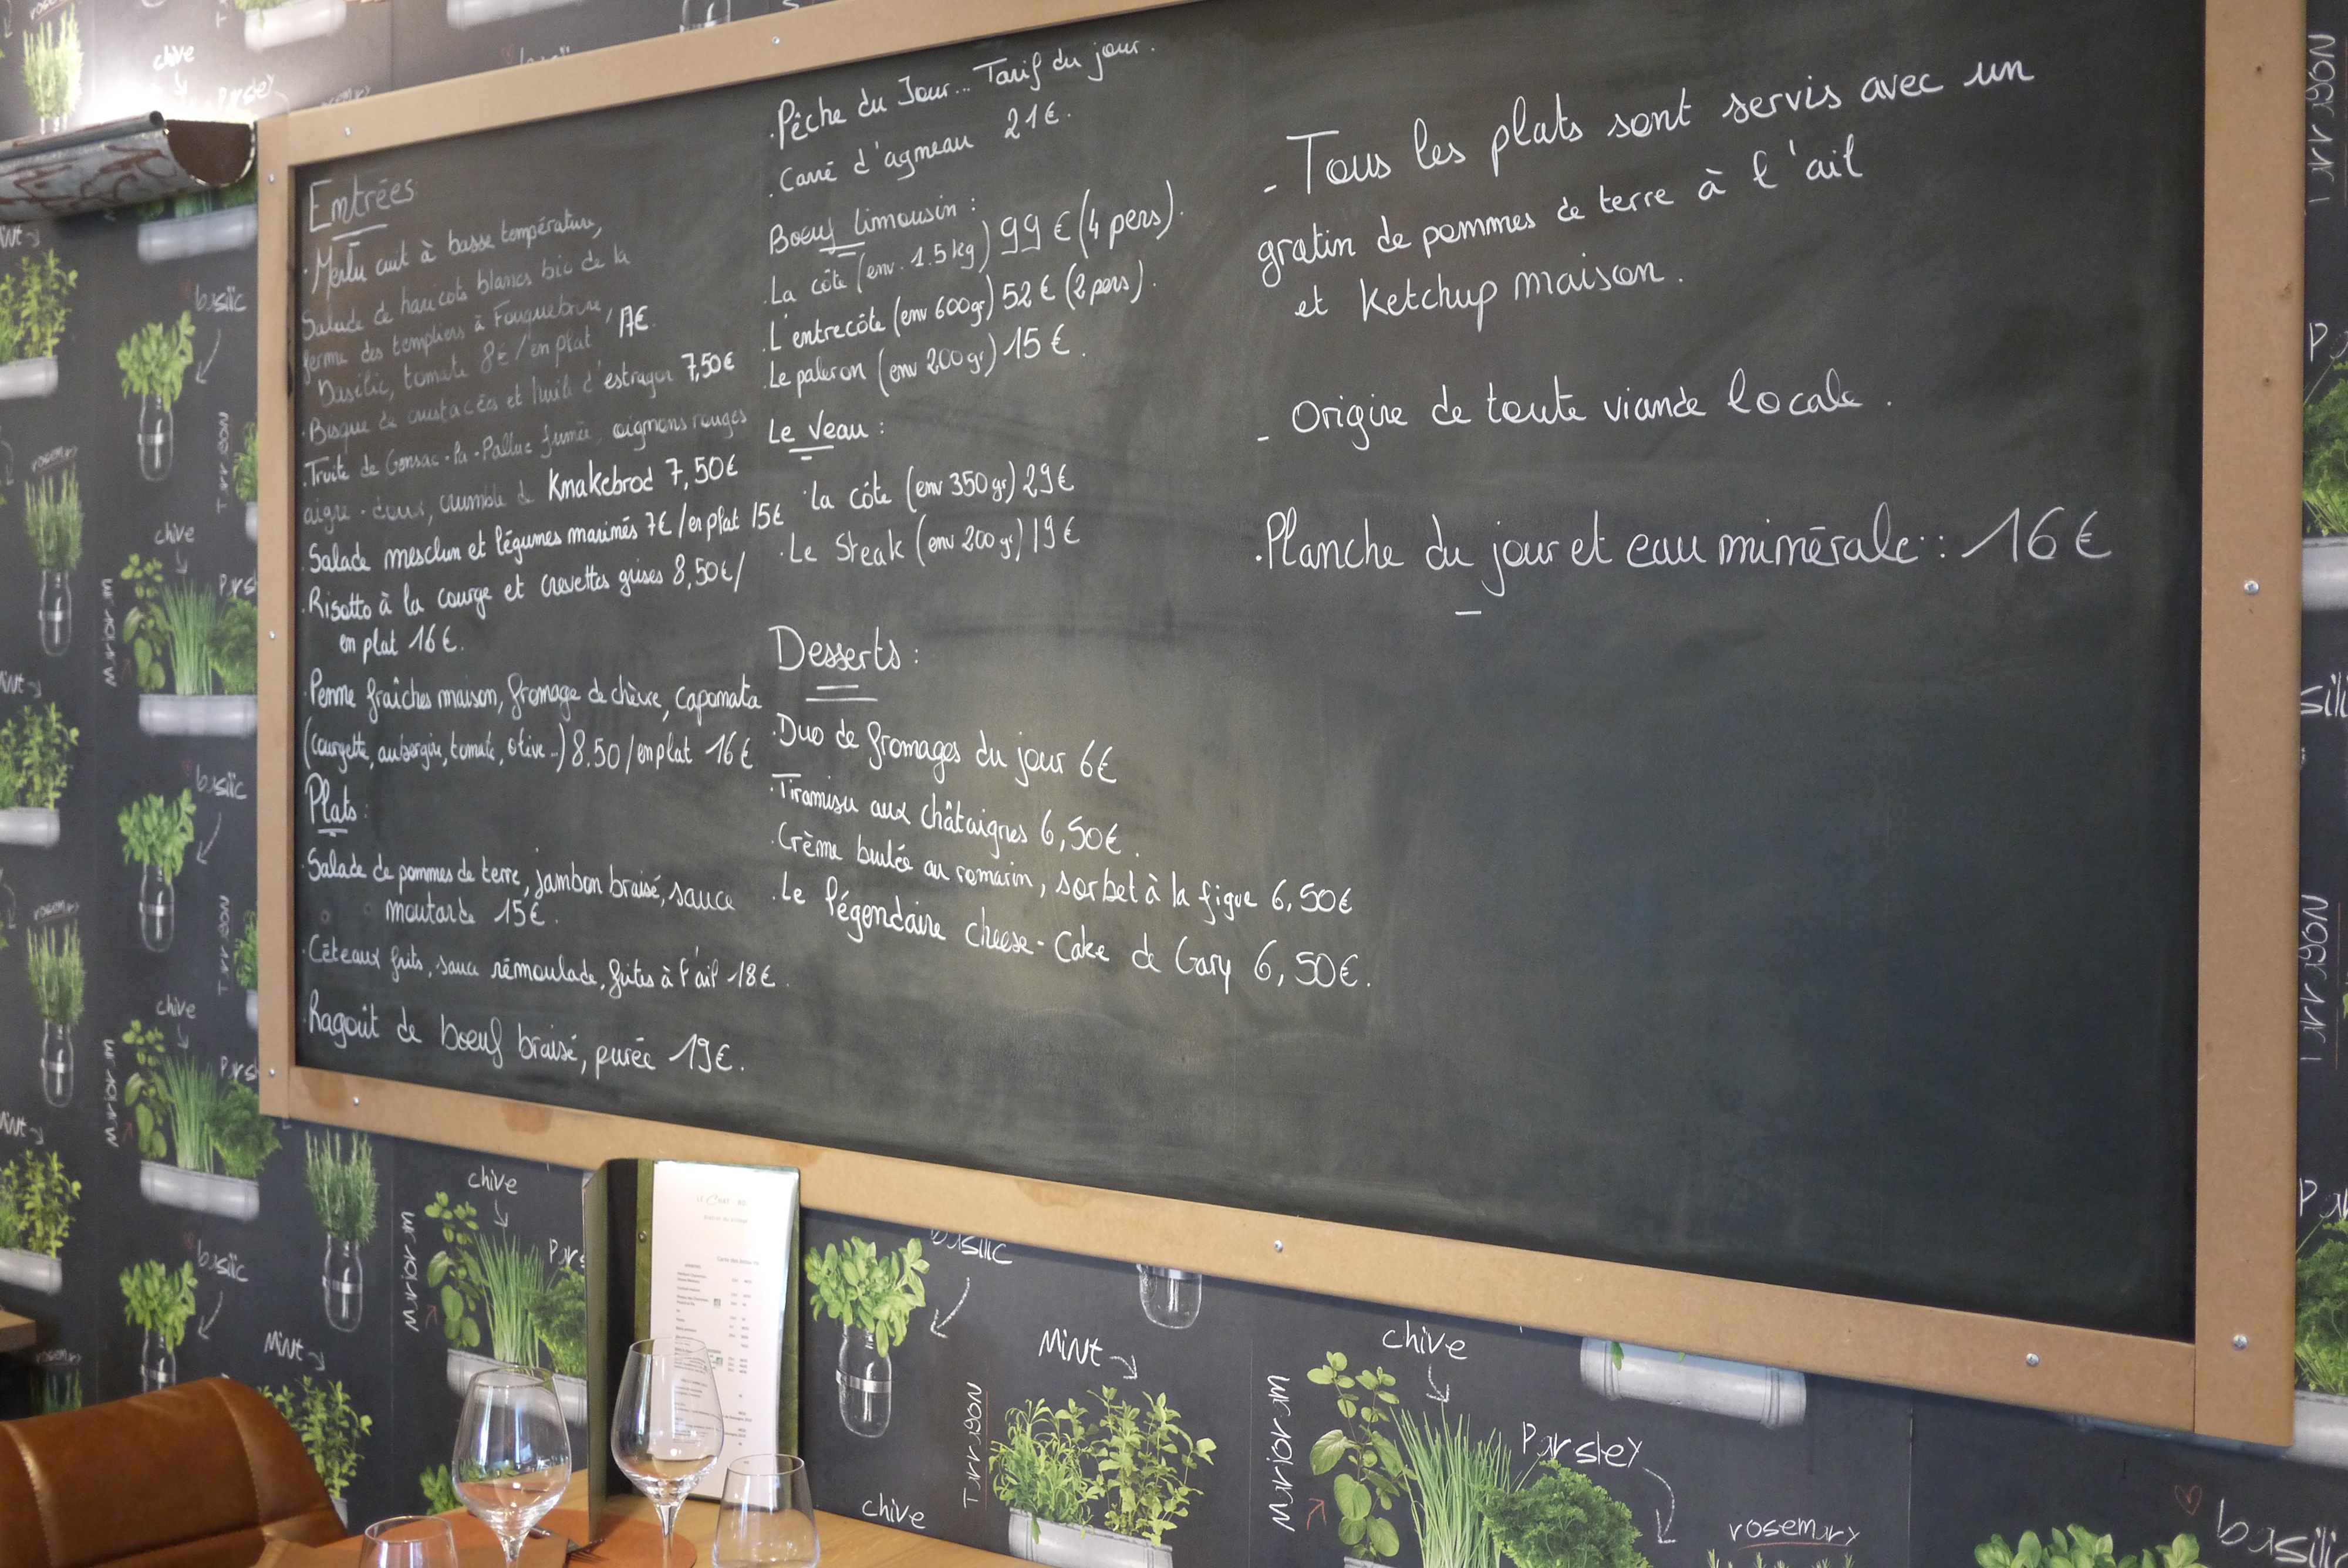 Entrées
. Merlu cuit à basse température,
Salade de haricots blancs bio de la
ferme des templiers à Fouquebrune,
Basilic, tomate 8€ / en plat 17€.
. Bisque de crustacées et huile d'estragon 7,50€
. Truite de Gensac-la-Pallue fumée, oignons rouges
aigre-doux, crumble de Knakebrod 7,50€
. Salade mesclun et légumes marinés 7€ / en plat 15€
. Risotto à la courge et crevettes grises 8,50€ /
en plat 16€.
. Penne fraîches maison, fromage de chèvre, caponata
(courgette, aubergine, tomate, olive...) 8.50 / en plat 16€
Plats :
. Salade de pommes de terre, jambon braisé, sauce
moutarde 15€.
. Céteaux frits, sauce rémoulade, frites à l'ail 18€.
. Ragoût de boeuf braisé, purée 19€.
. Pêche du Jour... Tarif du jour.
. Carré d'agneau 21€.
Boeuf limousin :
. La côte (env. 1.5kg) 99€ (4 pers).
. L'entrecôte (env 600gr) 52€ (2 pers).
. Le paleron (env 200gr) 15€.
Le Veau :
. La côte (env 350gr) 29€
. Le Steak (env 200gr) 19€
Desserts :
. Duo de fromages du jour 6€
. Tiramisu aux châtaignes 6,50€.
. Crème brulée au romarin, sorbet à la figue 6,50€
. Le légendaire cheese-Cake de Gary 6,50€.
- Tous les plats sont servis avec un
gratin de pommes de terre à l'ail
et Ketchup maison.
- Origine de toute viande locale.
. Planche du jour et eau minérale : 16€
basilic
chive
Parsley
rosemary
Mint
Marjoram
Tarragon